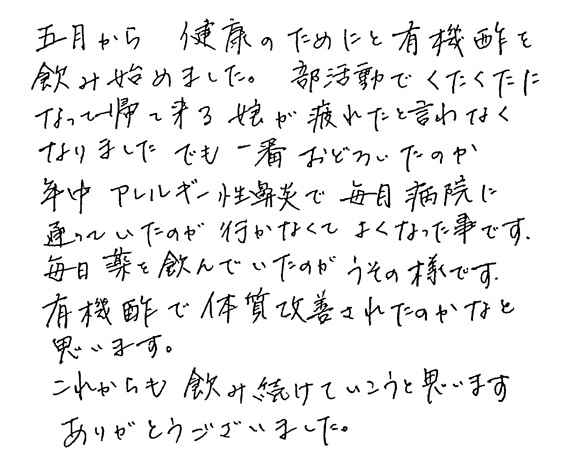 五月から 健康のためにと有機酢を
飲み始めました。 部活動でくたくたに
なって帰って来る娘が疲れたと言わなく
なりました でも一番おどろいたのが
年中 アレルギー性鼻炎で毎月病院に
通っていたのが行かなくてよくなった事です.
毎日薬を飲んでいたのがうその様です.
有機酢で体質改善されたのかなと
思います。
これからも飲み続けていこうと思います
ありがとうございました。